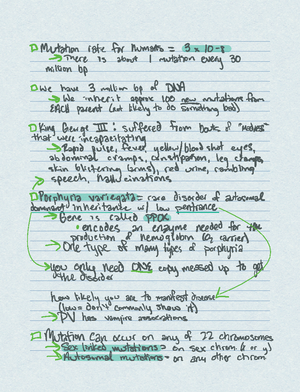 Mutation rate for humans = 3 x 10-8
→ There is about 1 mutation every 30
million bp
We have 3 million bp of DNA
→ We inherit approx 100 new mutations from
EACH parent (not likely to do something bad)
King George III: suffered from bouts of "Madness"
that were incapacitating
→ Rapid pulse, fever, yellow/bloodshot eyes,
abdominal cramps, constipation, leg cramps,
skin blistering (arms), red urine, rambling
speech, hallucinations
Porphyria variegata = rare disorder of autosomal
dominant inheritance w/ low penetrance
→ Gene is called PPOX
• encodes an enzyme needed for the
production of hemoglobin (O2 carrier)
→ One type of many types of porphyria
→ you only need ONE copy messed up to get
the disorder
how likely you are to manifest disease
(low = don't commonly show it)
→ PV has vampire associations
Mutation can occur on any of 22 chromosomes
→ Sex linked mutations = on sex chrom (x or y)
→ Autosomal mutations = on any other chrom